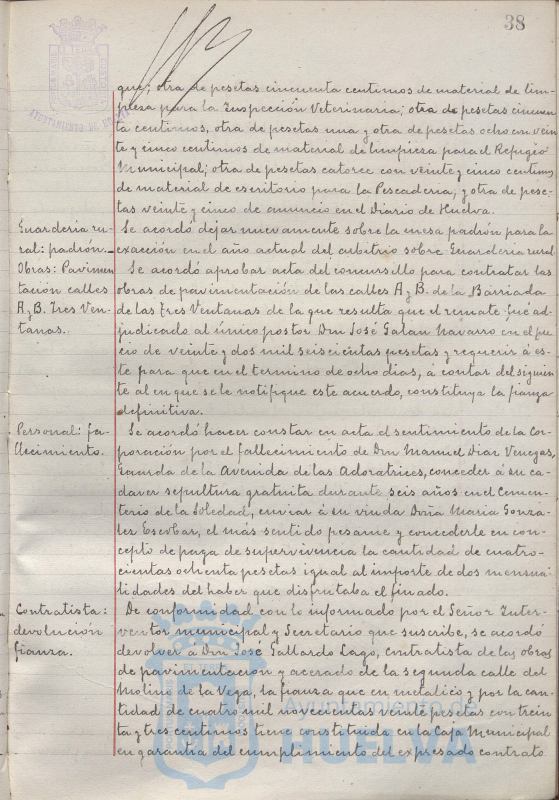 38
AYUNTAMIENTO DE HUELVA
que; otra de pesetas cincuenta centimos de material de lim-
pieza para la Inspección Veterinaria; otra de pesetas cincuen-
ta centimos, otra de pesetas una y otra de pesetas ocho con vein-
te y cinco centimos de material de limpieza para el Refugio
Municipal; otra de pesetas catorce con veinte y cinco centimos
de material de escritorio para la Pescaderia, y otra de pese-
tas veinte y cinco de anuncio en el Diario de Huelva.
Guarderia ru-
ral: padrón.
Se acordó dejar nuevamente sobre la mesa padrón para la
exacción en el año actual del arbitrio sobre Guarderia rural
Obras: Pavimen-
tación calles
A y B. Tres Ven-
tanas.
Se acordó aprobar acta del concursillo para contratar las
obras de pavimentación de las calles A y B. de la Barriada
de las Tres Ventanas de la que resulta que el remate fué ad-
judicado al único postor Don José Galan Navarro en el pre-
cio de veinte y dos mil seiscientas pesetas y requerir á es-
te para que en el termino de ocho dias, á contar del siguien-
te al en que se le notifique este acuerdo, constituya la fianza
definitiva.
Personal: fa-
llecimiento.
Se acordó hacer constar en acta el sentimiento de la Cor-
poración por el fallecimiento de Don Manuel Diaz Venegas,
Guarda de la Avenida de las Adoratrices, conceder á su ca-
daver sepultura gratuita durante seis años en el Cemen-
terio de la Soledad, enviar á su viuda Doña Maria Gonza-
lez Escobar, el más sentido pesame y concederle en con-
cepto de paga de supervivencia la cantidad de cuatro-
cientas ochenta pesetas igual al importe de dos mensua-
lidades del haber que disfrutaba el finado.
Contratista:
devolución
fianza.
De conformidad con lo informado por el Señor Inter-
ventor municipal y Secretario que suscribe, se acordó
devolver á Don José Gallardo Lago, contratista de las obras
de pavimentación y acerado de la segunda calle del
Molino de la Vega, la fianza que en metalico y por la can-
tidad de cuatro mil novecientas veinte pesetas con trein-
ta y tres centimos tiene constituida en la Caja Municipal
en garantia del cumplimiento del expresado contrato
Ayuntamiento de
HUELVA